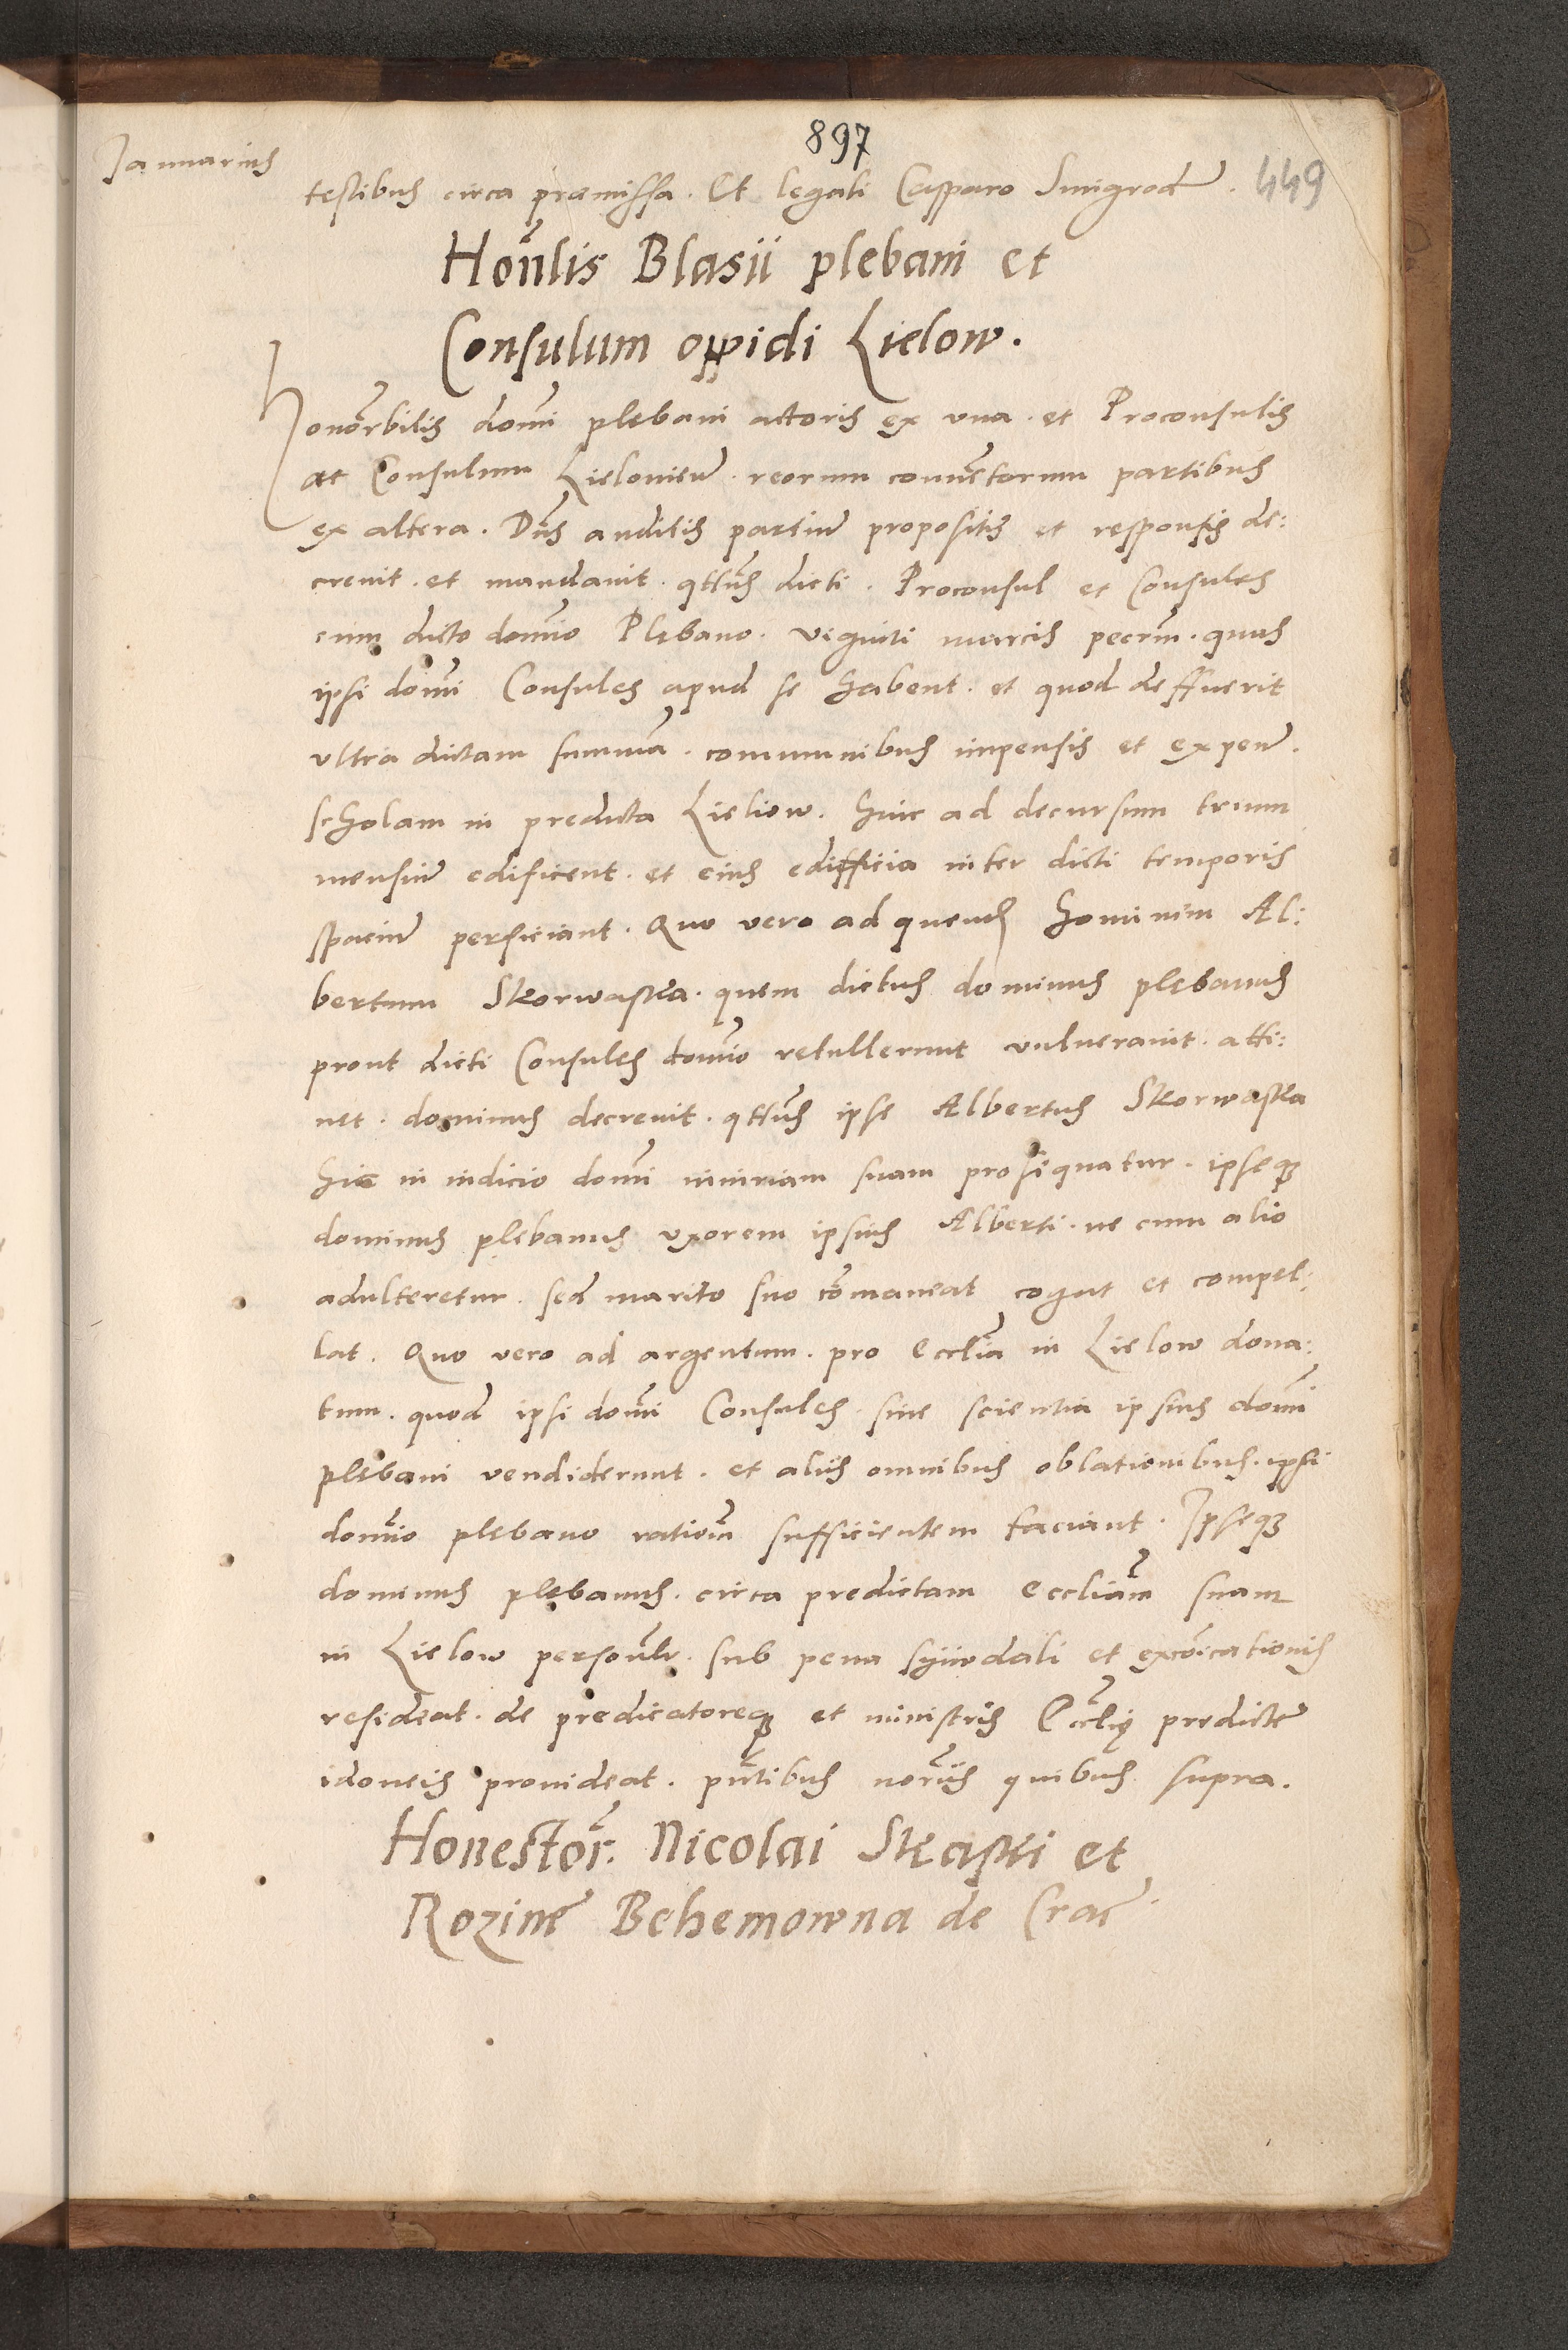 897
Januarius
testibus circa praemissa. Et legali Casparo Smigrod. 449
Hon̄lis Blasii plebani et
Consulum oppidi Lielow.
Honorbilis domi plebani actoris ex vna. et Proconsulis
ac Consulum Lieloviens. reorum conventorum partibus
ex altera. Dn̄s auditis partium propositis et responsis de:
crevit. et mandavit. qtt̄us dicti. Proconsul et Consules
cum dicto domīo Plebano. viginti marcis pecrm̄. quas
ipsi domī Consules apud se habent. et quod deffuerit
vltra dictam summā. communibus impensis et expens.
scholam in predicta Lieliow. hinc ad decursum trium
mensium edificent. et eius edifficia inter dicti temporis
spacium perficiant. Quo vero ad quendam hominem Al:
bertum Skorwaska. quem dictus dominus plebanus
prout dicti Consules domīo retullerunt vulneravit. atti:
net. dominus decrevit. qtt̄us ipse Albertus Skorwaska
hic in iudicio domī iniuriam suam prosequatur. ipseq;
dominus plebanus vxorem ipsius Alberti. ne cum alio
adulteretur. sed marito suo com̄aneat cogat et compel:
lat. Quo vero ad argentum. pro Eccliā in Lielow dona:
tum. quod ipsi domī Consules. sine scientia ipsius domī
plebani vendiderunt. et aliis omnibus oblationibus. ipsi
domīo plebano ratiom̄ sufficientem faciant. Ipseq;
dominus plebanus. circa predictam Eccliam̄ suam
in Lielow personlr̄. sub pena synodali et excōicationis
resideat. de predicatoreq; et ministris Eccliē predicte
idoneis provideat. pn̄tibus nor̄iis quibus supra.
Honestor̄. Nicolai Skaski et
Rozine Behemowna de Crac.